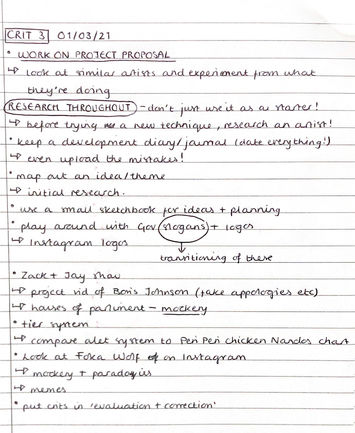 CRIT 3 01/03/21
• WORK ON PROJECT PROPOSAL
↳ look at similar artists and experiment from what
they're doing
RESEARCH THROUGHOUT - don't just use it as a starter!
↳ before trying a new technique, research an artist!
• keep a development diary/journal (date everything!)
↳ even upload the mistakes!
• map out an idea/theme
↳ initial research.
• use a small sketchbook for ideas + planning
• play around with Gov slogans + logos
↳ Instagram logos
transitioning of these
• Zack + Jay Shaw
↳ project vid of Boris Johnson (fake appologies etc)
↳ houses of parliment - mockery
• tier system:
↳ compare alet system to Peri Peri chicken Nandos chart
• Look at Foka Wolf on Instagram
↳ mockery + paradoy
↳ memes
• put crits in 'evaluation + correction'